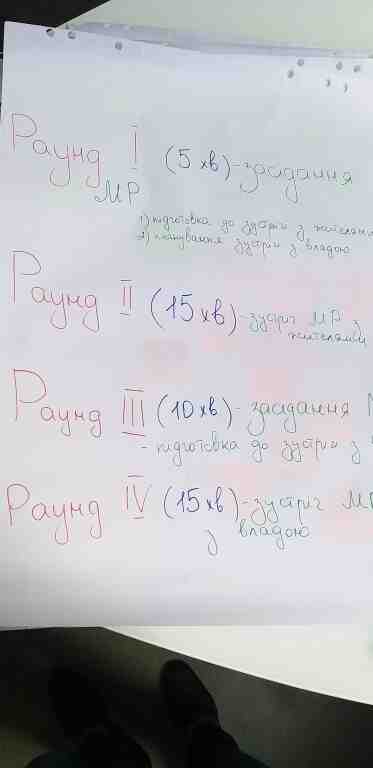 Раунд I (5 хв) - засідання
МР
1) підготовка до зустрічі з жителями
2) планування зустрічі з владою
Раунд II (15 хв) - зустріч МР з
жителями
Раунд III (10 хв) - засідання
- підготовка до зустрічі з
Раунд IV (15 хв) - зустріч МР
з владою